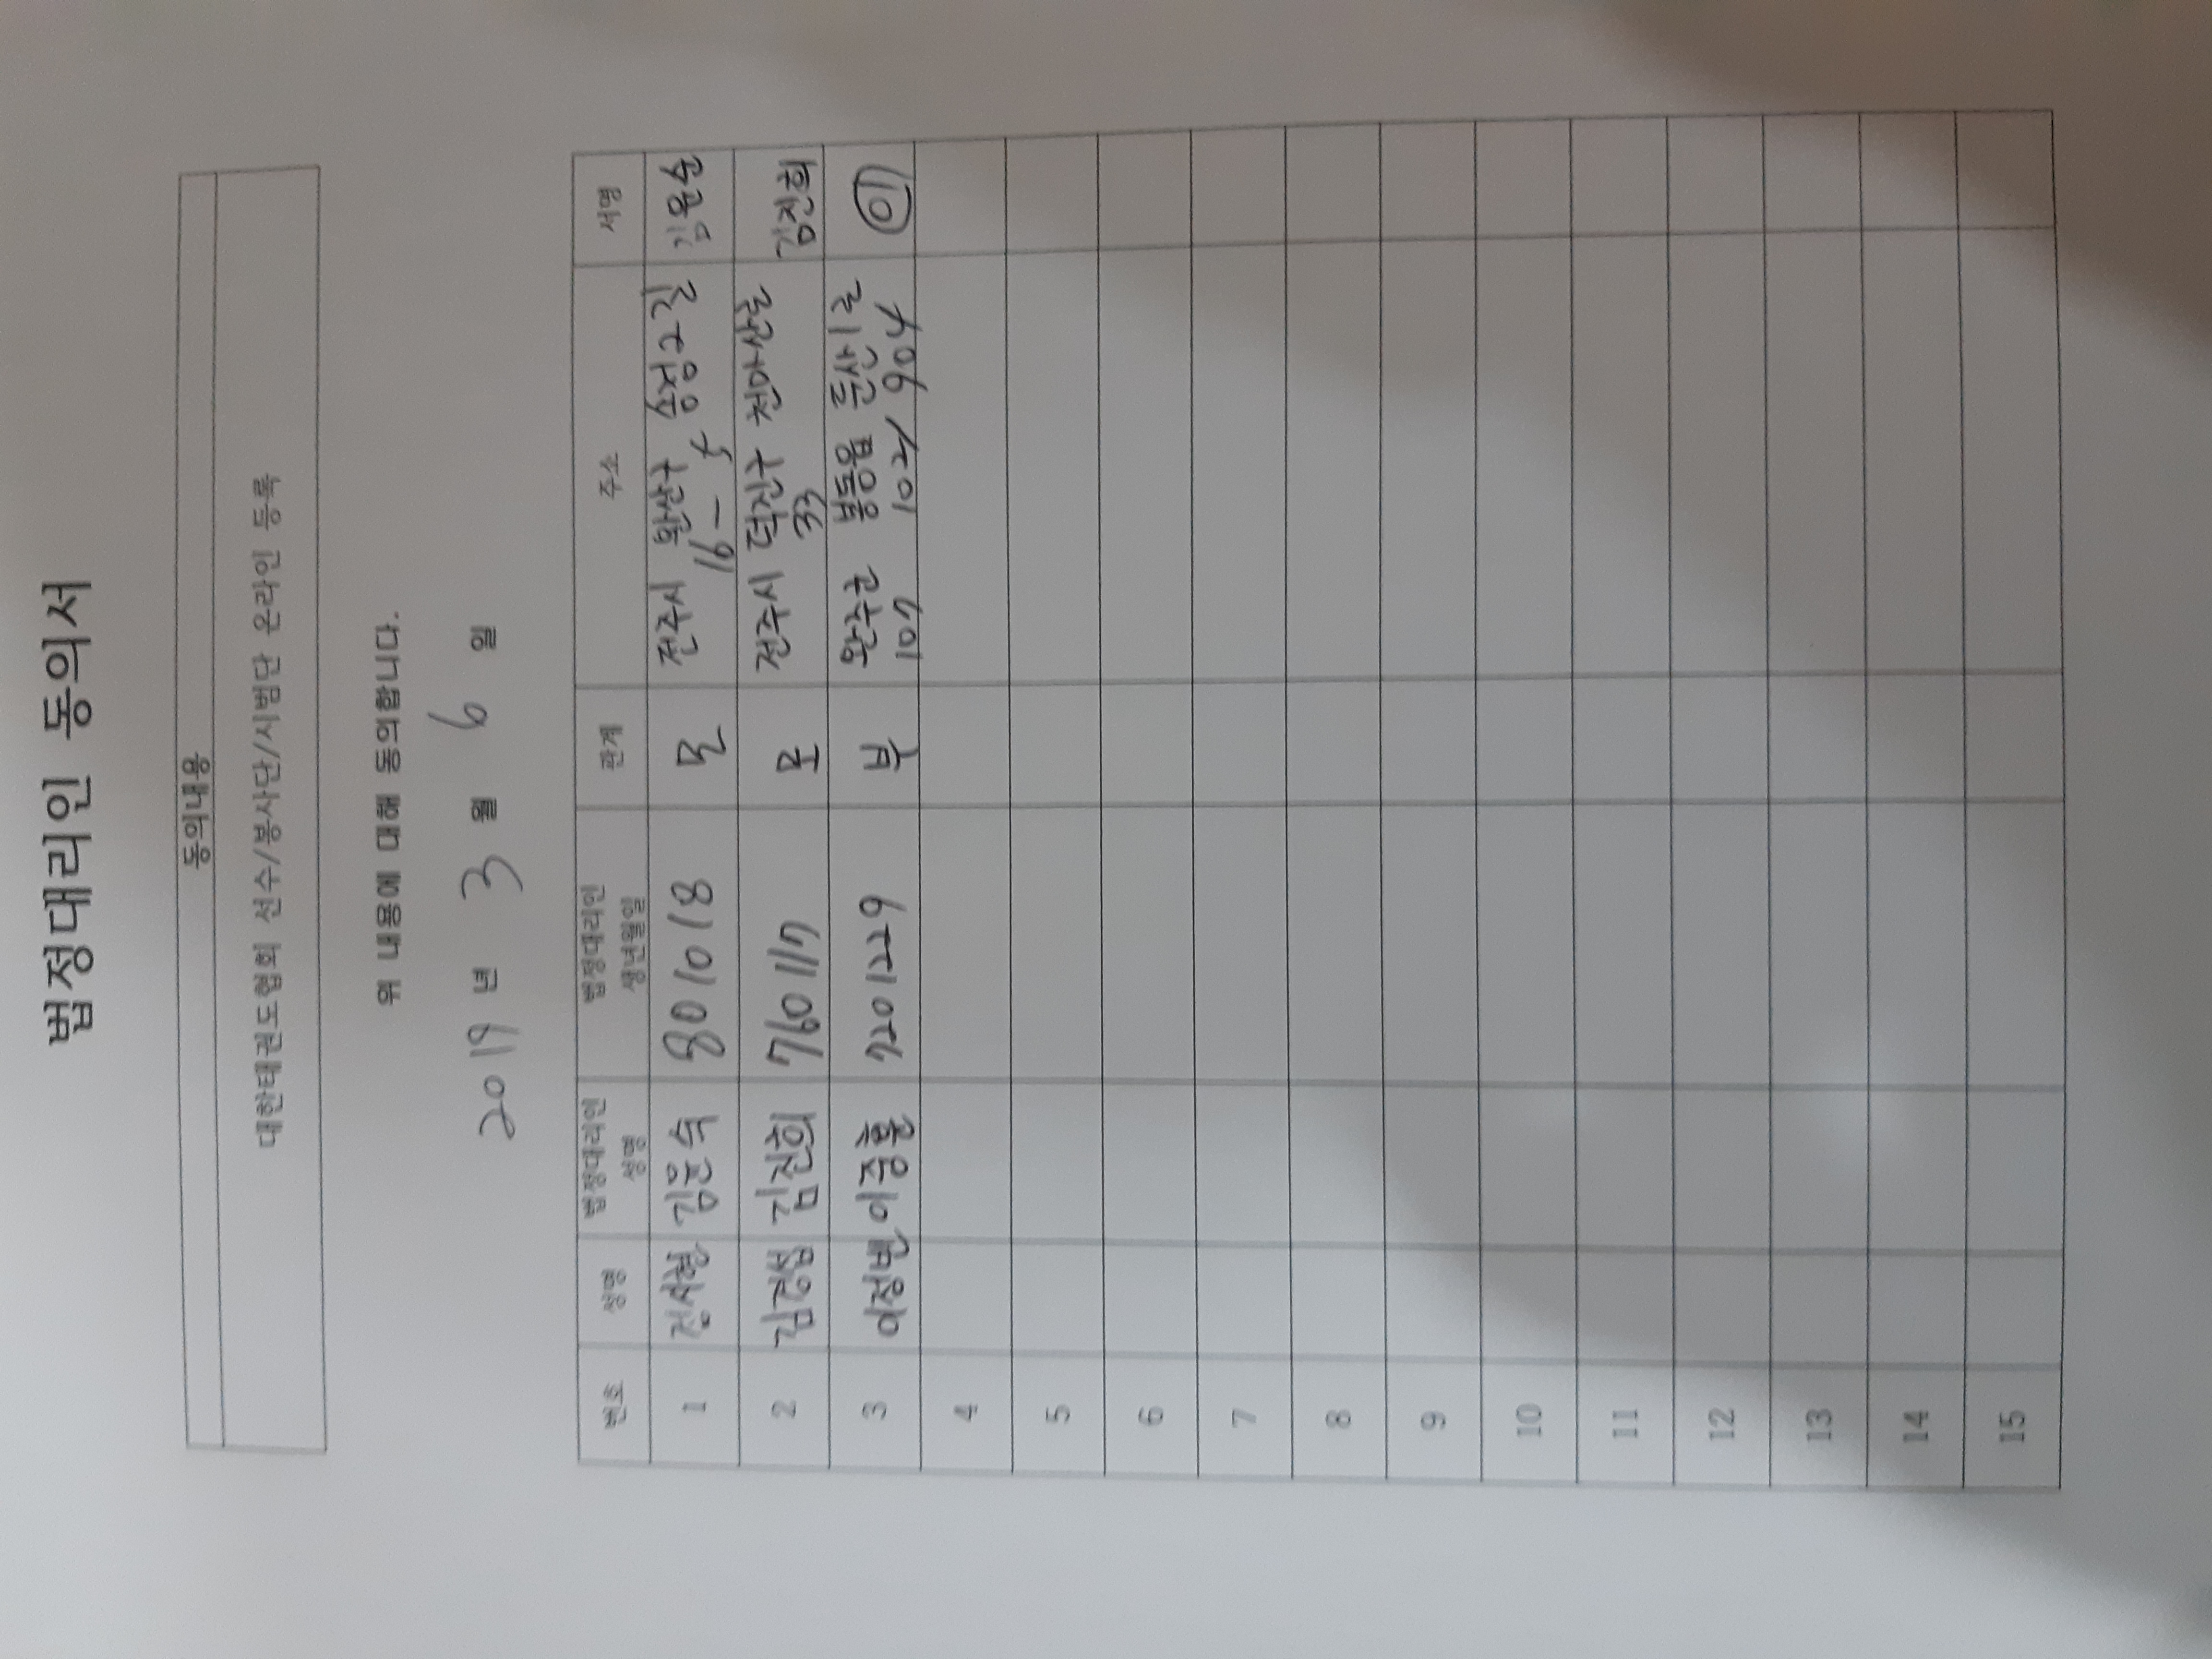 법정대리인 동의서
동의내용
대한태권도협회 선수/봉사단/시범단 온라인 등록
위 내용에 대해 동의합니다.
2019 년 3 월 6 일
번호 성명 법정대리인 성명 법정대리인 생년월일 관계 주소 서명
1 김은숙 801018 모 전주시 완산구
16-5
2 김경섭 김진희 760117 모 전주시 덕진구 천마산로 김진희
33
3 이정빈 이중훈 701229 부 완주군 봉동읍 둔산리
101 / 604
4
5
6
7
8
9
10
11
12
13
14
15